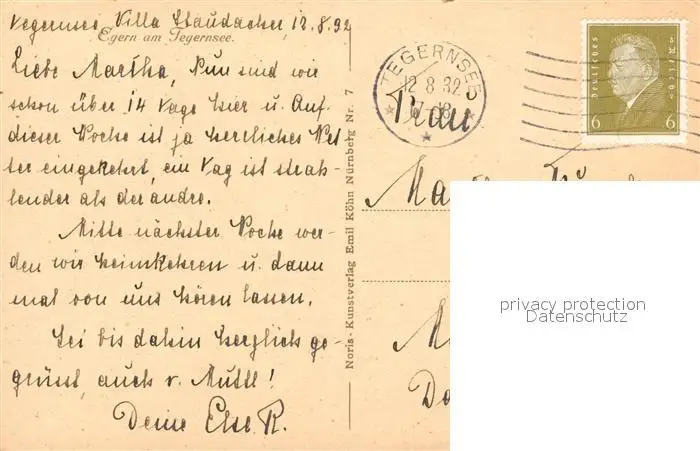 Tegernsee Villa Staudacher, 12.8.32
Egern am Tegernsee.
Liebe Martha, Nun sind wir
schon über 14 Tage hier u. Auf.
dieser Woche ist ja herrliches Wet-
ter eingekehrt, ein Tag ist strah-
lender als der andre.
Mitte nächster Woche wer-
den wir heimkehren u. dann
mal von uns hören lassen.
Sei bis dahin herzlich ge-
grüsst, auch v. Muttl!
Deine Else R.
Noris-Kunstverlag Emil Köhn Nürnberg Nr. 7
TEGERNSEE
12 8 32
Deutsches Reich
6 6
Frau
privacy protection
Datenschutz